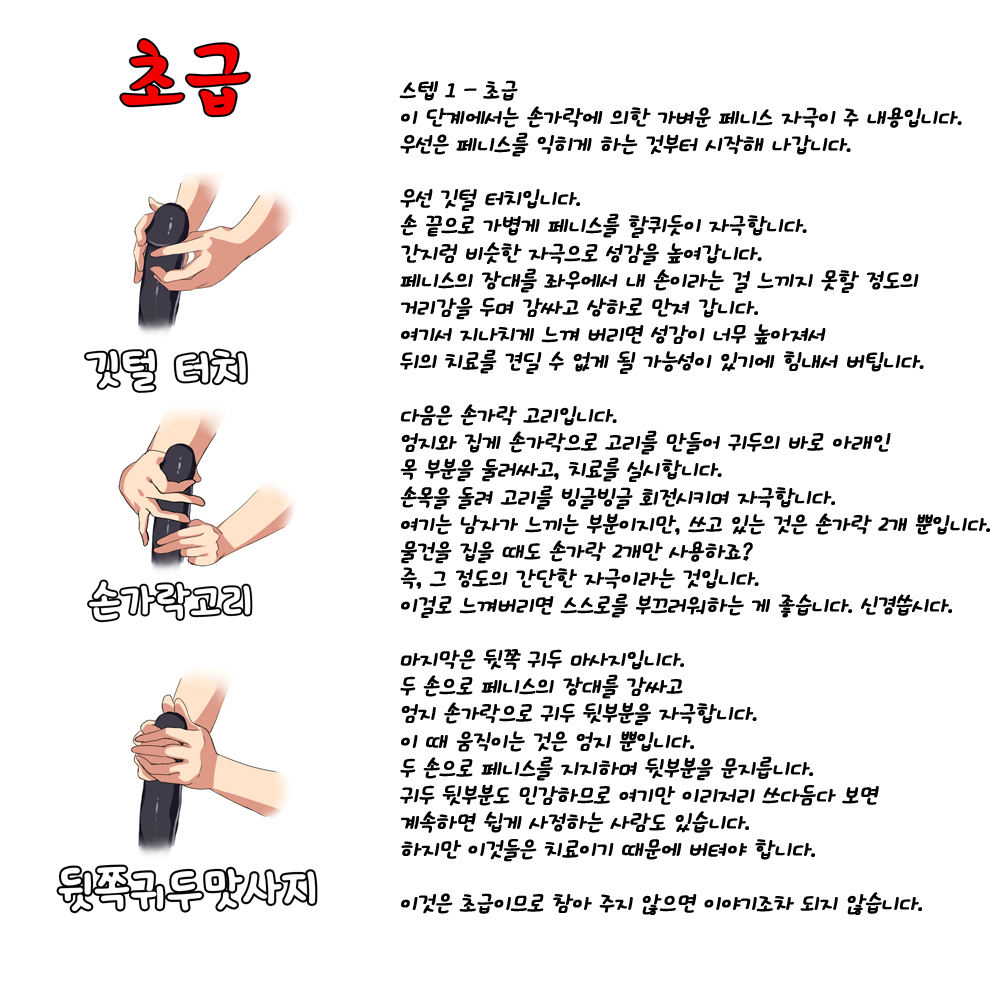 초급
스텝 1 - 초급
이 단계에서는 손가락에 의한 가벼운 페니스 자극이 주 내용입니다.
우선은 페니스를 익히게 하는 것부터 시작해 나갑니다.
우선 깃털 터치입니다.
손 끝으로 가볍게 페니스를 할퀴듯이 자극합니다.
간지럼 비슷한 자극으로 성감을 높여갑니다.
페니스의 장대를 좌우에서 내 손이라는 걸 느끼지 못할 정도의
거리감을 두며 감싸고 상하로 만져 갑니다.
여기서 지나치게 느껴 버리면 성감이 너무 높아져서
뒤의 치료를 견딜 수 없게 될 가능성이 있기에 힘내서 버팁니다.
깃털 터치
다음은 손가락 고리입니다.
엄지와 집게 손가락으로 고리를 만들어 귀두의 바로 아래인
목 부분을 둘러싸고, 치료를 실시합니다.
손목을 돌려 고리를 빙글빙글 회전시키며 자극합니다.
여기는 남자가 느끼는 부분이지만, 쓰고 있는 것은 손가락 2개 뿐입니다.
물건을 집을 때도 손가락 2개만 사용하죠?
즉, 그 정도의 간단한 자극이라는 것입니다.
이걸로 느껴버리면 스스로를 부끄러워하는 게 좋습니다. 신경씁시다.
손가락고리
마지막은 뒷쪽 귀두 마사지입니다.
두 손으로 페니스의 장대를 감싸고
엄지 손가락으로 귀두 뒷부분을 자극합니다.
이 때 움직이는 것은 엄지 뿐입니다.
두 손으로 페니스를 지지하며 뒷부분을 문지릅니다.
귀두 뒷부분도 민감하므로 여기만 이리저리 쓰다듬다 보면
계속하면 쉽게 사정하는 사람도 있습니다.
하지만 이것들은 치료이기 때문에 버텨야 합니다.
뒷쪽귀두맛사지
이것은 초급이므로 참아 주지 않으면 이야기조차 되지 않습니다.